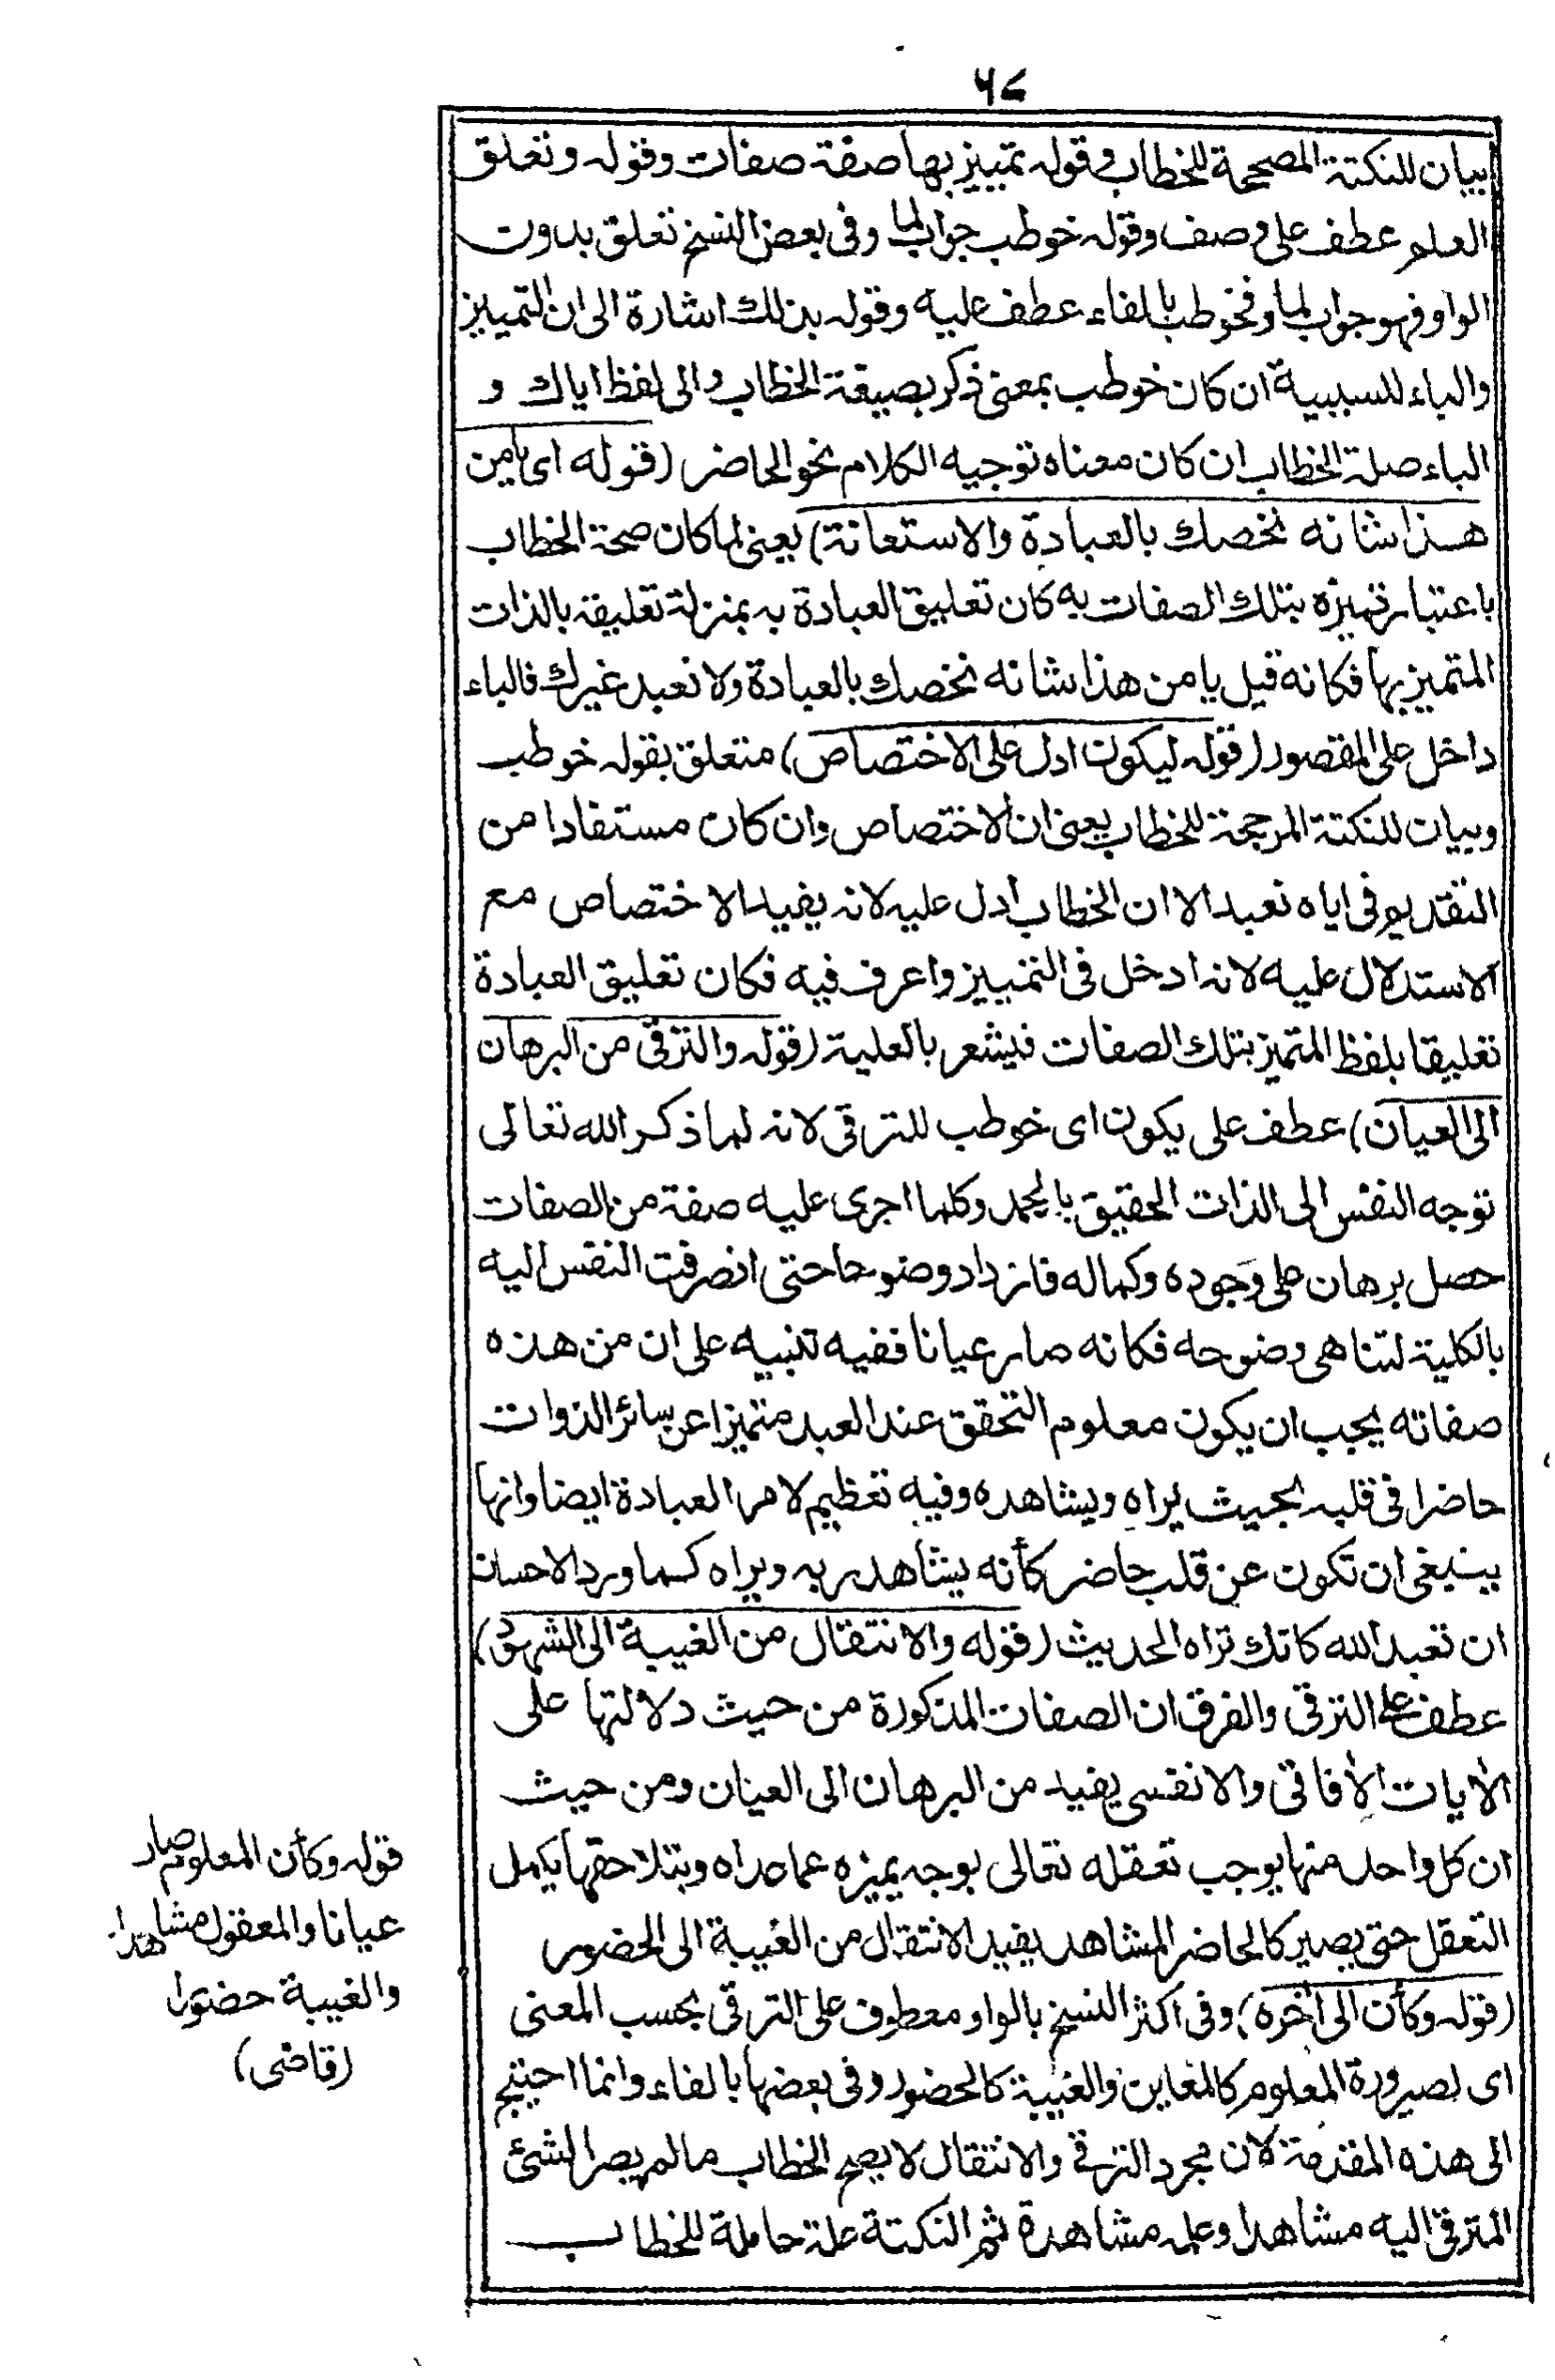 ٦٧
بيان للنكتة المصححة للخطاب وقوله تمييز بها صفة صفات وقوله وتعلق
العلم عطف على وصف وقوله خوطب جواب لما وفى بعض النسخ تعلق بدون
الواو فهو جواب لما وفخوطب بالفاء عطف عليه وقوله بذلك اشارة الى ان التمييز
والباء للسببية ان كان خوطب بمعنى ذكر بصيغة الخطاب والى لفظ اياك و
الباء صلة الخطاب ان كان معناه توجيه الكلام نحو الحاضر (قوله اى يامن
هذا شانه نخصك بالعبادة والاستعانة) يعنى لما كان صحة الخطاب
باعتبار تميزه بتلك الصفات به كان تعليق العبادة به بمنزلة تعليقه بالذات
المتميز بها فكانه قيل يا من هذا شانه نخصك بالعبادة ولا نعبد غيرك فالباء
داخل على المقصور (قوله ليكون ادل على الاختصاص) متعلق بقوله خوطب
وبيان للنكتة المرجحة للخطاب يعنى ان الاختصاص وان كان مستفادا من
التقديم فى اياه نعبد الا ان الخطاب أدل عليه لانه يفيد الاختصاص مع
الاستدلال عليه لانه ادخل فى التمييز واعرف فيه فكان تعليق العبادة
تعليقا بلفظ المتميز بتلك الصفات فيشعر بالعلية (قوله والترقى من البرهان
الى العيان) عطف على يكون اى خوطب للترقى لانه لما ذكر الله تعالى
توجه النفس الى الذات الحقيق بالحمد وكلما اجرى عليه صفة من الصفات
حصل برهان على وجوده وكماله فازداد وضوحا حتى انصرفت النفس اليه
بالكلية لتناهى وضوحه فكانه صار عيانا ففيه تنبيه على ان من هذه
صفاته يجب ان يكون معلوم التحقق عند العبد متميزا عن سائر الذوات
حاضرا فى قلبه بحيث يراه ويشاهده وفيه تعظيم لامر العبادة ايضا وانها
ينبغى ان تكون عن قلب حاضر كأنه يشاهد ربه ويراه كما ورد الاحسان
ان تعبد الله كانك تراه الحديث (قوله والانتقال من الغيبة الى الشهود)
عطف على الترقى والفرق ان الصفات المذكورة من حيث دلالتها على
الأيات الأفاقى والانفسى يفيد من البرهان الى العيان ومن حيث
ان كل واحد منها يوجب تعقله تعالى بوجه يميزه عما عداه وبتلاحقها يكمل
التعقل حتى يصير كالحاضر المشاهد يفيد الانتقال من الغيبة الى الحضور
(قوله وكأن الى أخره) وفى اكثر النسخ بالواو معطوف على الترقى بحسب المعنى
اى لصيرورة المعلوم كالمعاين والغيبة كالحضور وفى بعضها بالفاء وانما احتيج
الى هذه المقدمة لان مجرد الترقى والانتقال لا يصح الخطاب مالم يصر الشئ
المترقى اليه مشاهدا وعلمه مشاهدة ثم النكتة علة حاملة للخطاب
قوله وكأن المعلوم صار
عيانا والمعقول مشاهدا
والغيبة حضورا
(قاضى)